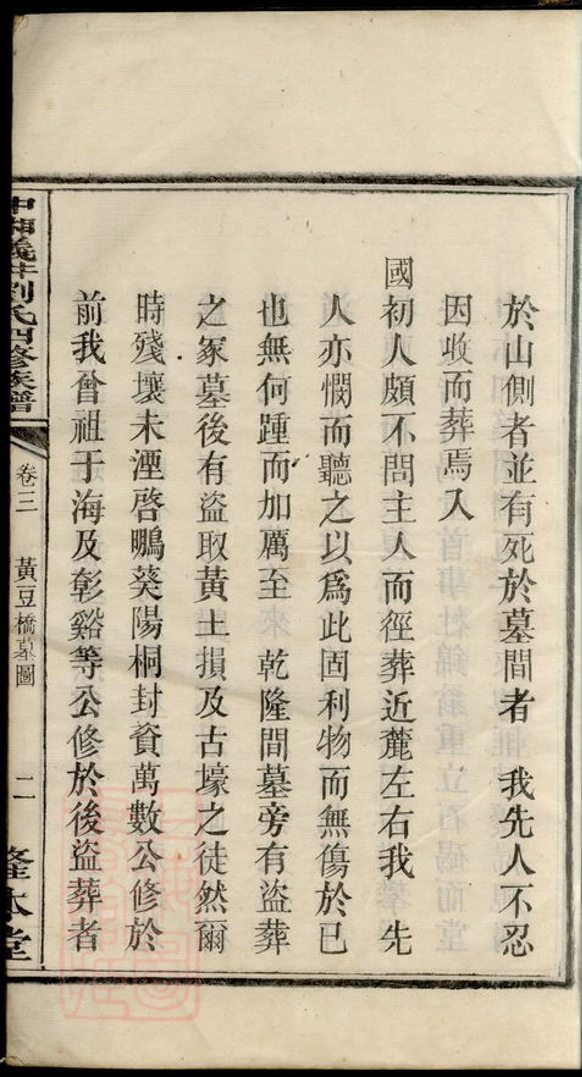 於山側者並有死於墓間者　我先人不忍
因收而葬焉入
國初人頗不問主人而徑葬近麓左右我　先
人亦憫而聽之以爲此固利物而無傷於已
也無何踵而加厲至　乾隆間墓旁有盜葬
之冢墓後有盜取黃土損及古壕之徒然爾
時殘壞未湮啓鵰葵陽桐封資萬數公修於
前我曾祖于海及彰谿等公修於後盜葬者
中湘義井劉氏四修族譜
卷三　黃豆橋墓圖　二